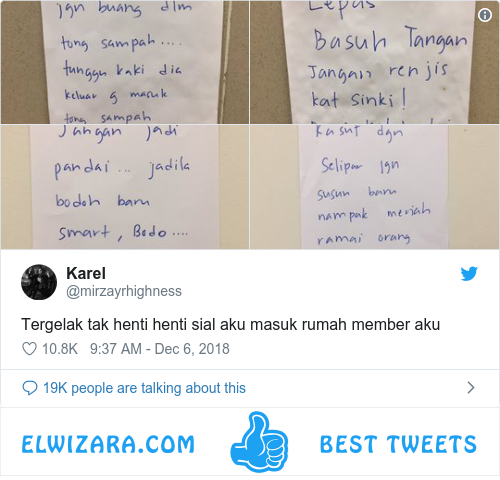 jgn buang dlm
tong sampah....
tunggu kaki dia
keluar g masuk
tong sampah
Lepas
Basuh Tangan
Jangan renjis
kat sinki!
Jangan jadi
pandai... jadila
bodoh baru
smart, Bodo....
Kasut dgn
Selipar jgn
susun baru
nampak meriah
ramai orang
Karel
@mirzayrhighness
Tergelak tak henti henti sial aku masuk rumah member aku
10.8K 9:37 AM - Dec 6, 2018
19K people are talking about this
ELWIZARA.COM BEST TWEETS